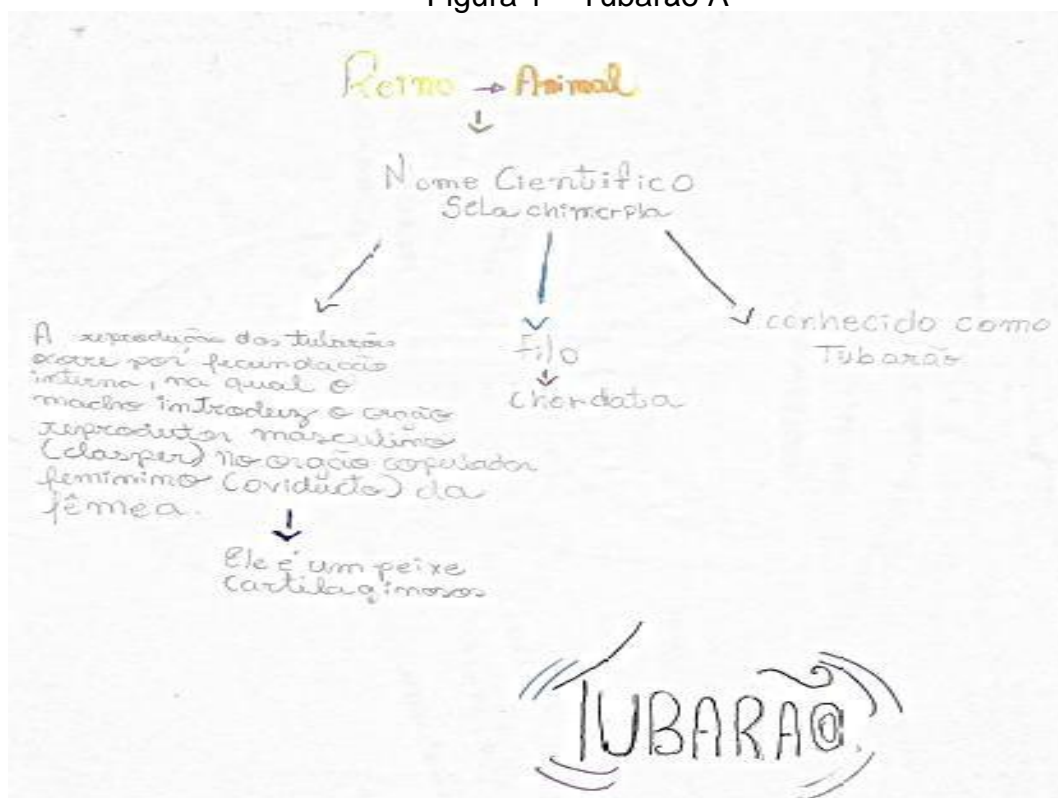 Figura 1 – Tubarão A
Reino → Animal
Nome Cientifico
Selachimorpha
A reprodução dos tubarões
ocorre por fecundacão
interna, na qual o
macho introduz o orgão
reprodutor masculino
(clasper) no orgão copulador
feminino (oviducto) da
fêmea.
Ele é um peixe
cartilaginosos
Filo
Chordata
conhecido como
Tubarão
TUBARÃO